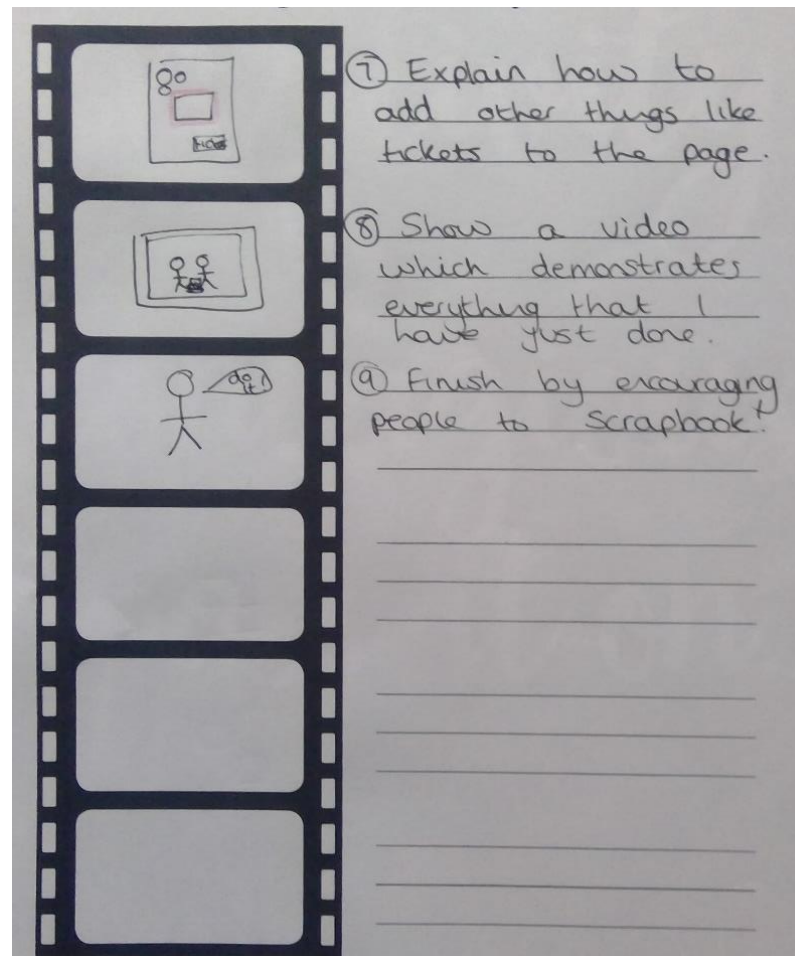 ⑦ Explain how to
add other things like
tickets to the page.
⑧ Show a video
which demonstrates
everything that I
have just done.
⑨ Finish by encouraging
people to Scrapbook!
do
it!